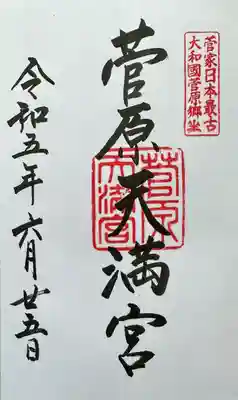 菅家日本最古
大和國菅原郷坐
菅原天満宮
令和五年六月廿五日